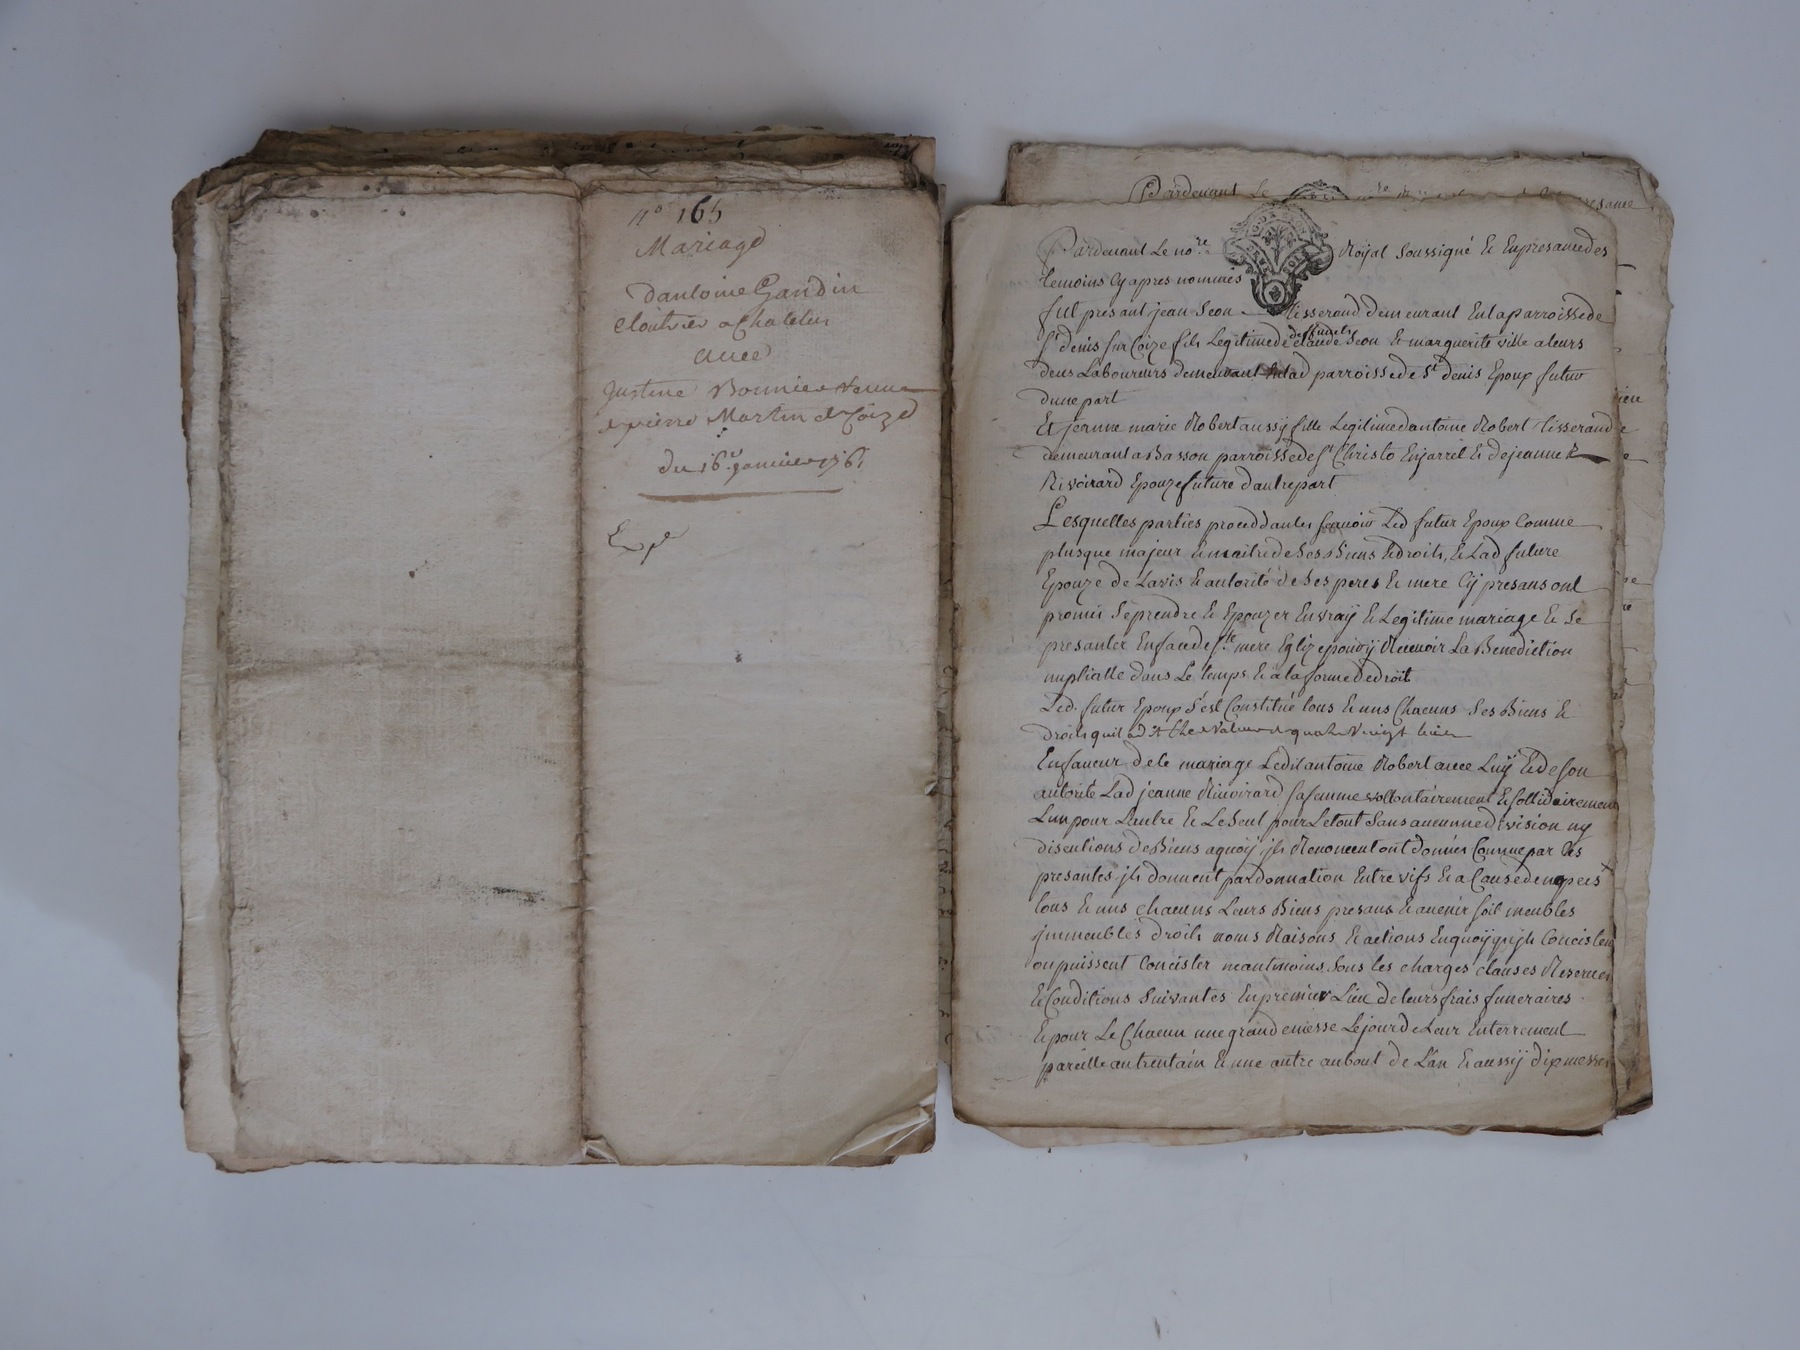 n° 165
Mariage
D'antoine Gandin
cloutrier a Chatelus
avec
Justine Bonnier veuve
de pierre Martin de Coize
du 16e janvier 1761
Exp.e
Pardevant Le
Pardevant Le no.re Royal Soussigné Et En presance des
temoins Cy apres nommés
fut presant jean Seon tisserand demeurant En la parroisse de
St denis sur Coize fils Legitime de deffunts Claude Seon Et marguerite ville a leurs
deus Laboureurs demeurant En lad parroisse de St denis Epoux futur
d'une part
Et jeanne marie Robert aussy fille Legitime d'antoine Robert tisserand
demeurant a Basson parroisse de St Christo En jarrêt Et de jeanne
Rivoirard Epouze future d'autre part
Lesquelles parties proceddantes sçavoir Led futur Epoux Comme
plus que majeur Et maitre de Ses Biens Et droits, Et Lad future
Epouze de L'avis Et autorité de Ses peres Et mere Cy presans ont
promis Se prendre Et Epouzer En vray Et Legitime mariage Et Se
presanter En face de Ste mere Eglize pour y Recevoir La Benediction
nuptialle dans Le temps Et a la forme de droit
Led. futur Epoux S'est Constitué tous Et uns Chacuns Ses Biens Et
Droits qu'il a dit Etre de valeur de quatre vingt livres
En faveur de Ce mariage Ledit antoine Robert avec Luy Et de Son
autorité Lad jeanne Rivoirard Sa femme vollontairement Et Sollidairement
L'un pour L'autre Et Le Seul pour Le tout Sans aucunne division ny
discutions de Biens a quoy ils Renoncent ont donnés Comme par Ces
presantes ils donnent par donnation Entre vifs Et a Cause de nopces
tous Et uns chacuns Leurs Biens presans Et avenir soit meubles
immeubles droits noms Raisons Et actions En quoy qu'ils Concistent
ou puissent Concister neantmoins Sous les charges clauses Reserves
Et Conditions Suivantes En premier Lieu de leurs frais funeraires
Et pour Le Chacun une grande messe Le jour de Leur Enterrement
pareille au trentain Et une autre au bout de L'an Et aussy dix messes